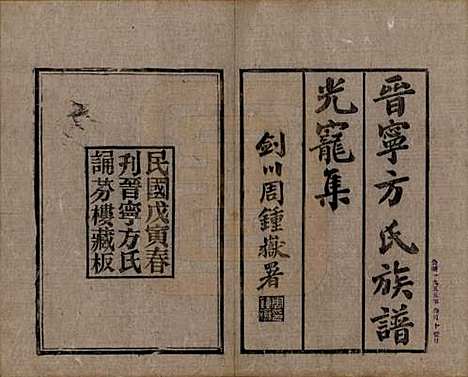 晉寧方氏族譜
光寵集
劍川周鍾嶽署
民國戊寅春
刋晉寧方氏
誦芬樓藏板